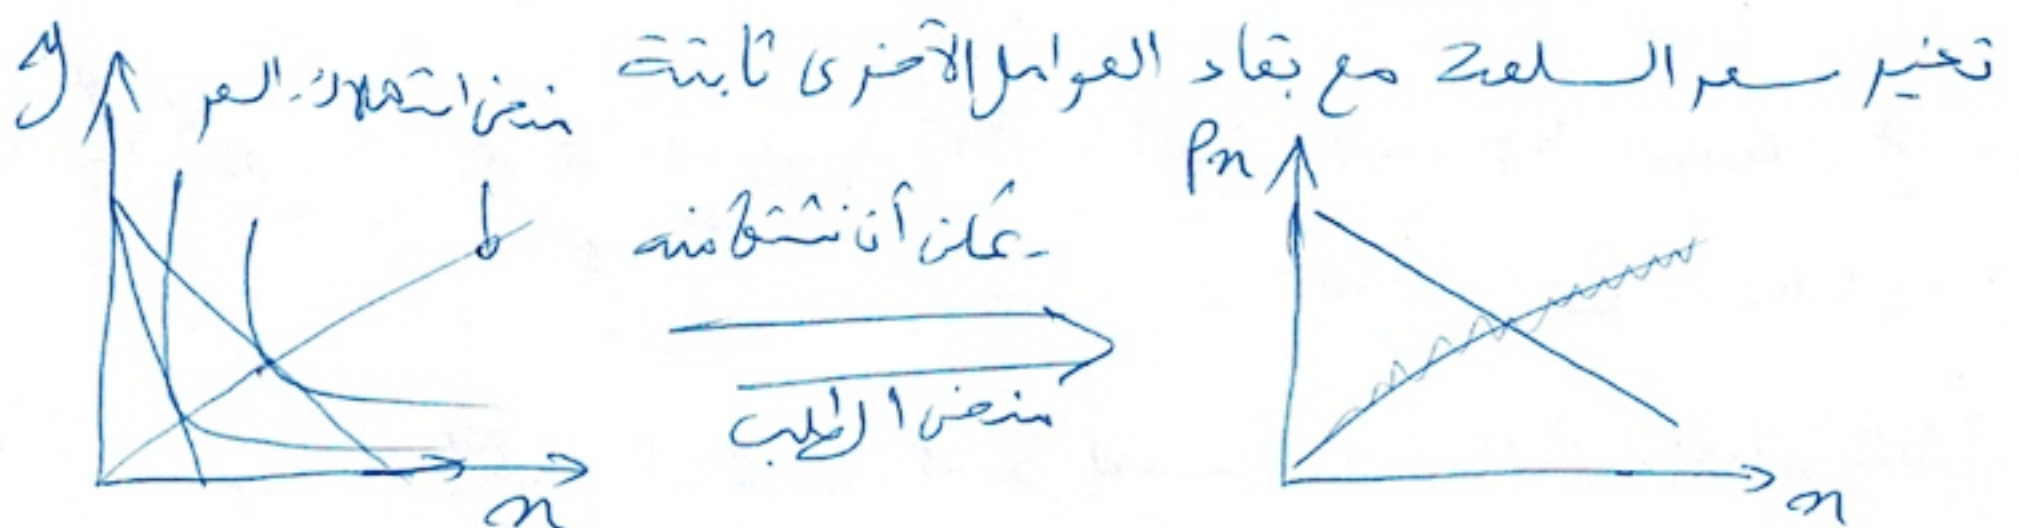 تغير سعر السلعة مع بقاء العوامل الأخرى ثابتة
منحنى استهلاك السعر
y
Px
يمكن أن نشتق منه
منحنى الطلب
x
x